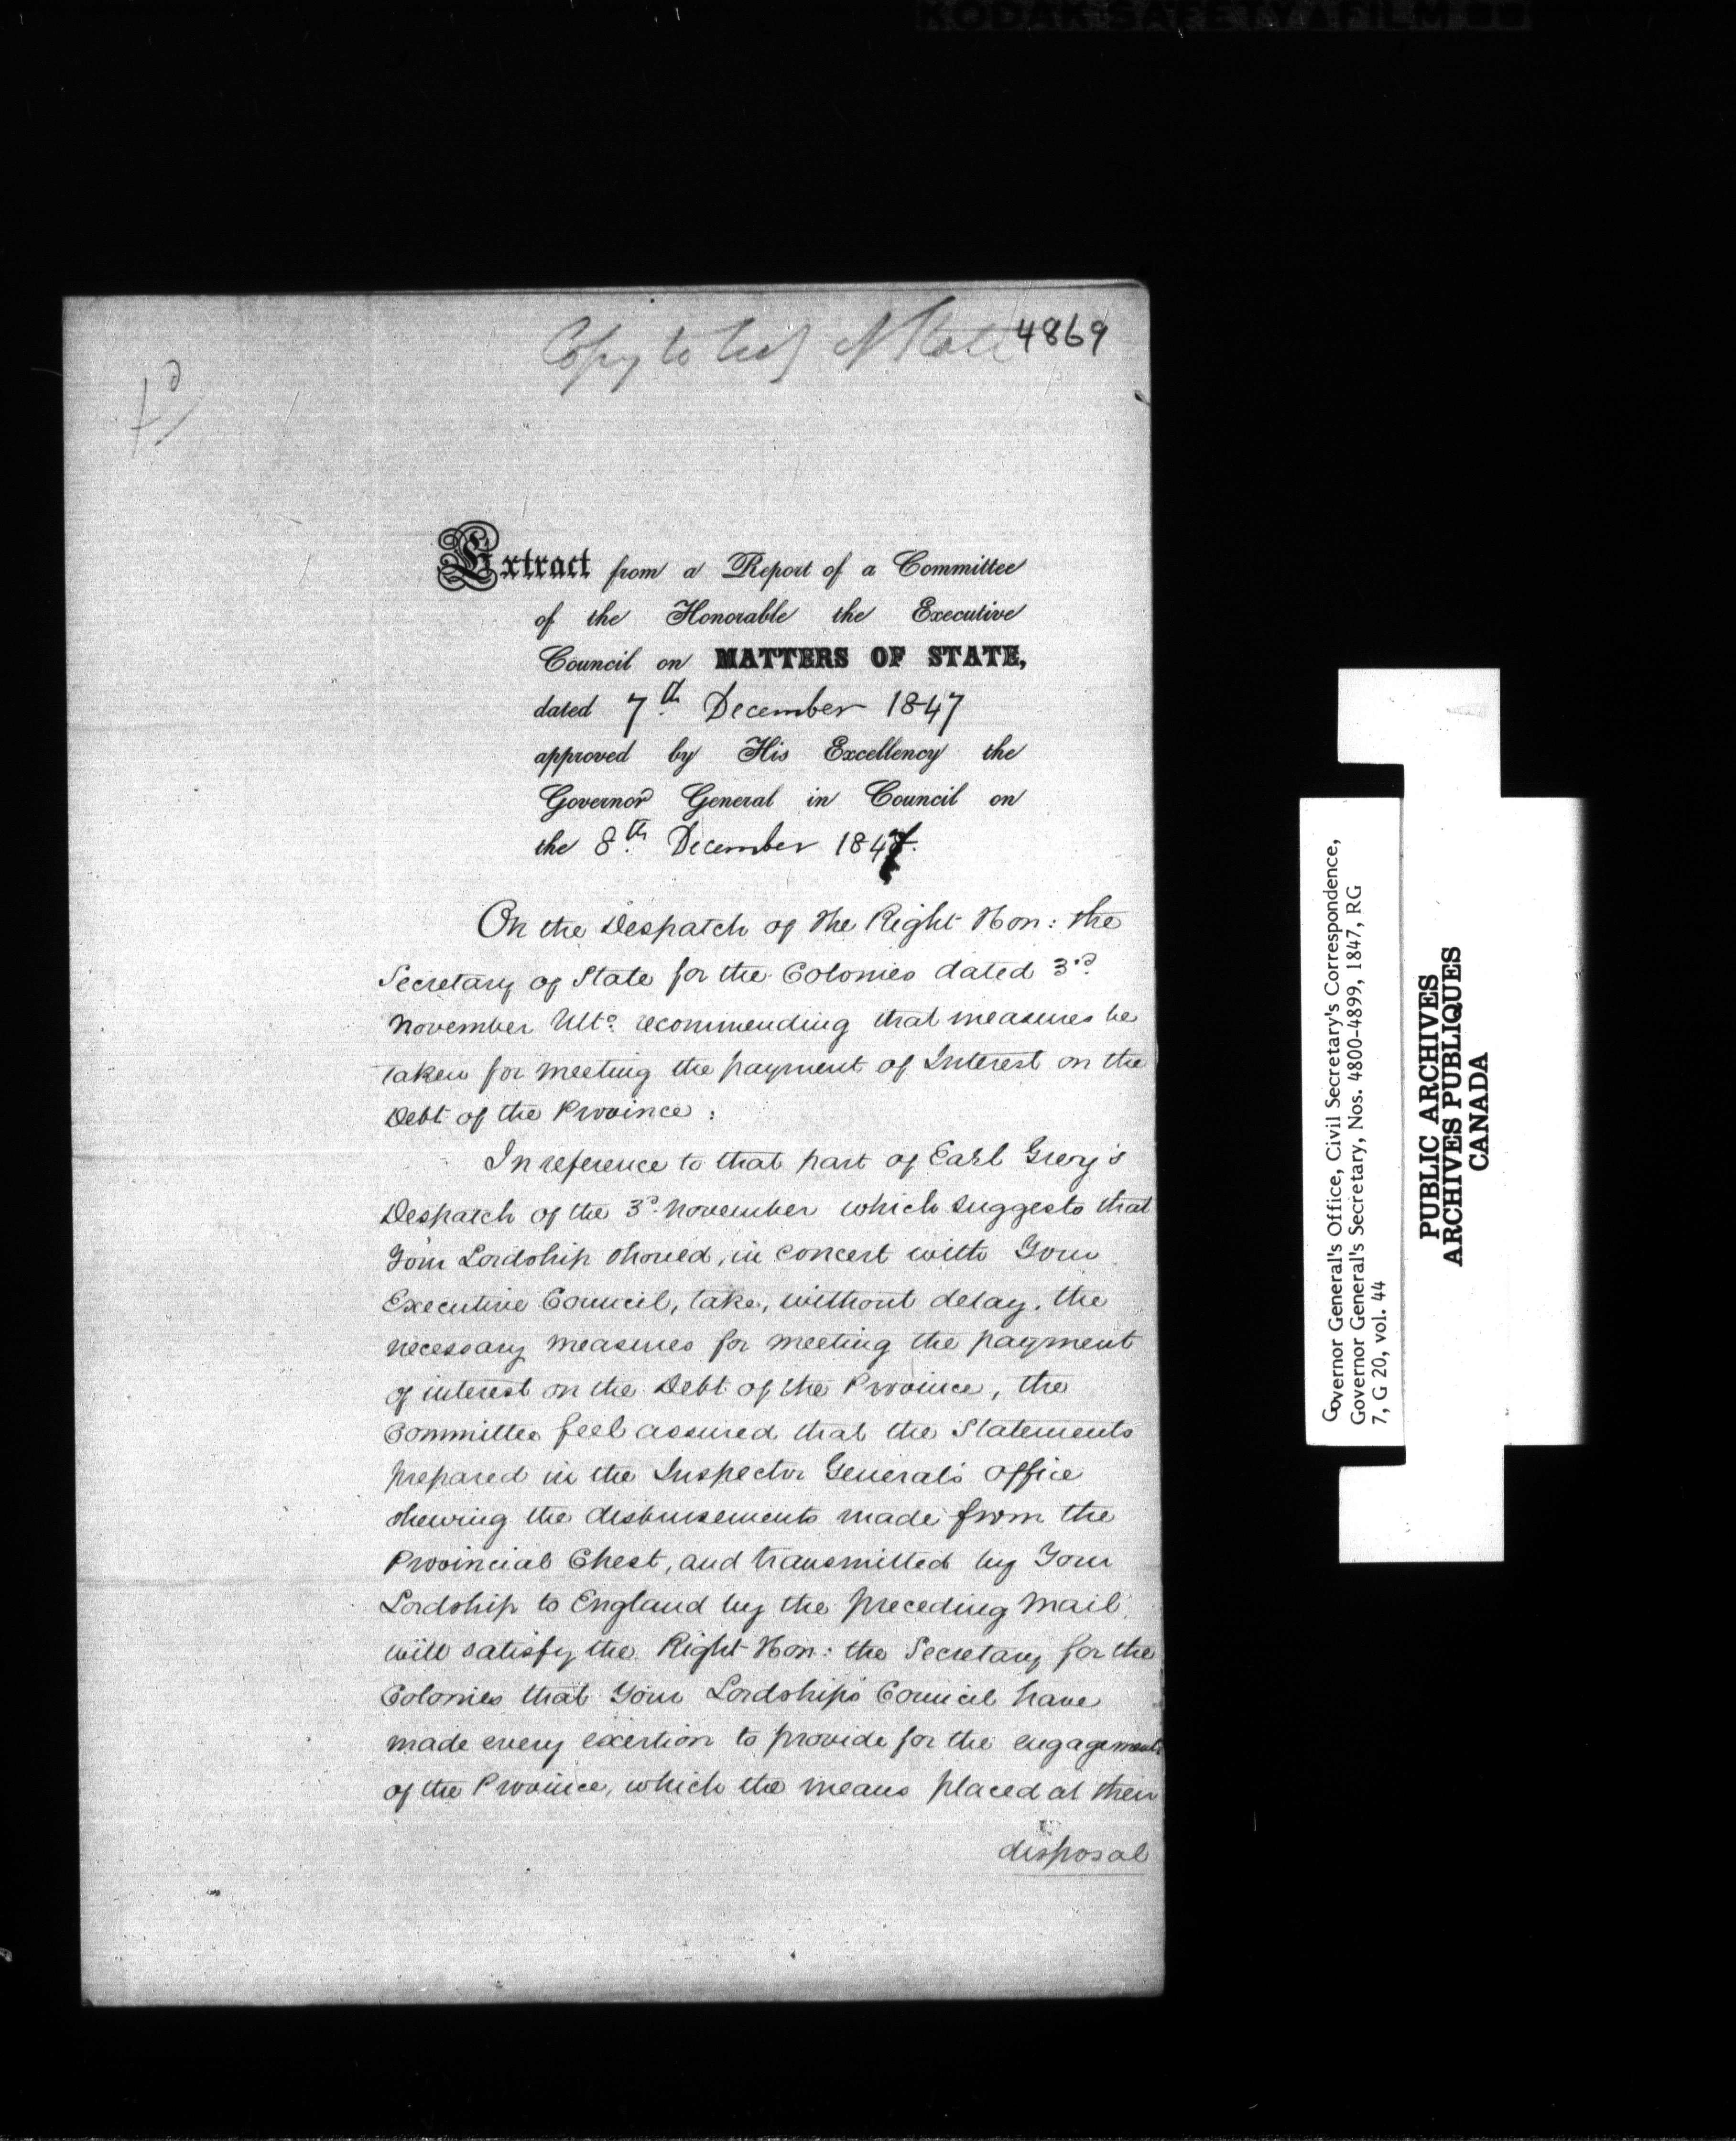 KODAK SAFETY FILM
Copy to Secy of State 4869
Extract from a Report of a Committee
of the Honorable the Executive
Council on MATTERS OF STATE,
dated 7th December 1847
approved by His Excellency the
Governor General in Council on
the 8th December 1847.
On the Despatch of The Right Hon: the
Secretary of State for the Colonies dated 3rd
November Ulto. recommending that measures be
taken for meeting the payment of Interest on the
Debt of the Province:
In reference to that part of Earl Grey's
Despatch of the 3d November which suggests that
Your Lordship should, in concert with Your
Executive Council, take, without delay, the
necessary measures for meeting the payment
of interest on the Debt of the Province, the
Committee feel assured that the Statements
prepared in the Inspector General's office
shewing the disbursements made from the
Provincial Chest, and transmitted by Your
Lordship to England by the preceding Mail,
will satisfy the Right Hon: the Secretary for the
Colonies that Your Lordship's Council have
made every exertion to provide for the engagements
of the Province, which the means placed at their
disposal
Governor General's Office, Civil Secretary's Correspondence,
Governor General's Secretary, Nos. 4800-4899, 1847, RG
7, G 20, vol. 44
PUBLIC ARCHIVES
ARCHIVES PUBLIQUES
CANADA